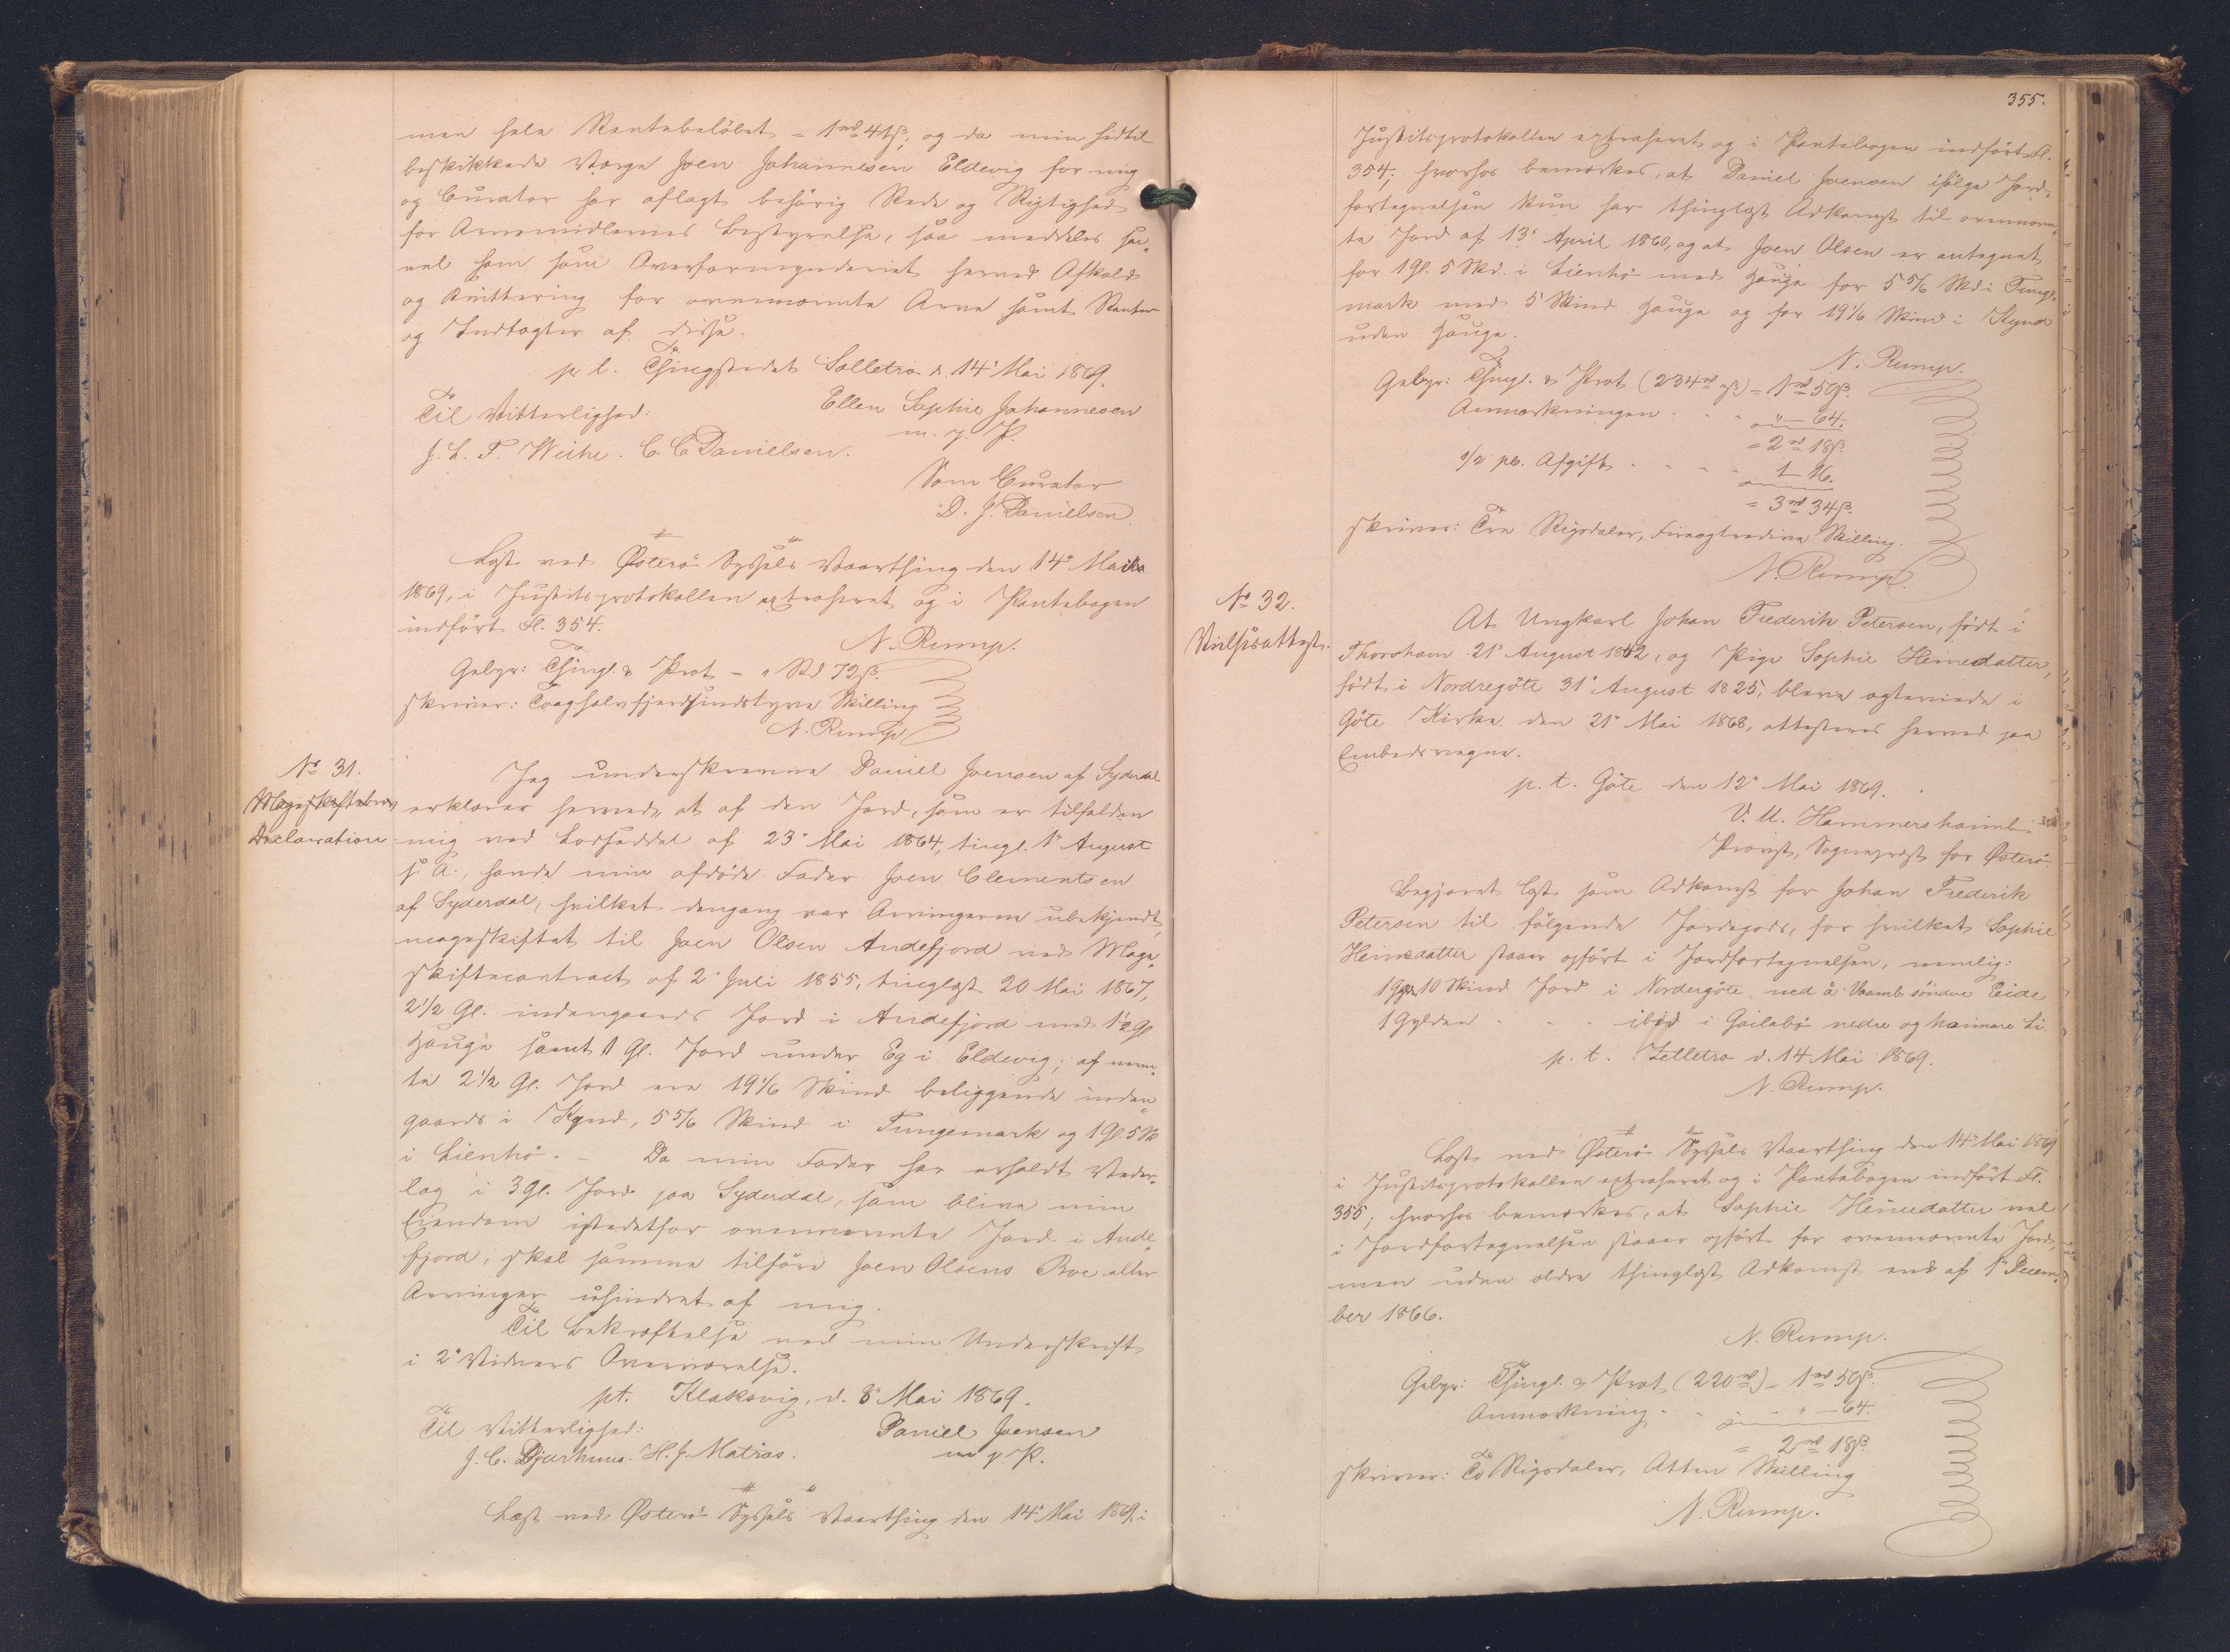 men hele Rentebeløbet = 1 rd 41 ß; og da min hidtil
beskikkede Værge Joen Johannesen Eldevig for mig
og Curator har aflagt behørig Rede og Rigtighed
for Arvemidlernes Bestyrelse, saa meddeles saa-
vel ham som Overformynderiet herved Afkald
og Kvittering for ovennævnte Arv samt Renter
og Indtægter af disse.
p. t. Thingstedet Selletræ d. 14' Mai 1869.
Til Vitterlighed: Ellen Sophie Johannesen
J. L. F. Weihe. C. C. Danielsen. m. f. P.
Som Curator
D. J. Danielsen
Læst ved Østerø Syssels Vaarthing den 14' Mai
1869, i Justitsprotokollen extraheret og i Pantebogen
indført Fl. 354.
N. Rump.
Gebyr: Thingl. & Prot - " Rd 72 ß.
skriver: Tooghalvfjerdsindstyve Skilling
N. Rump
No 31.
Mageskiftebrev
Declaration
Jeg underskrevne Daniel Joensen af Syderdal
erklærer herved, at af den Jord, som er tilfalden
mig ved Lodseddel af 23' Mai 1864, tingl. 1' August
s. A., havde min afdøde Fader Joen Clementsen
af Syderdal, hvilket dengang var Arvingerne ubekjendt,
mageskiftet til Joen Olsen Andefjord ved Mage-
skiftecontract af 2' Juli 1855, tinglæst 20 Mai 1867,
2 1/2 Gl. indengaards Jord i Andefjord med 1 1/2 Gl
Hauge samt 1 Gl. Jord under Eg i Eldevig; af nævn-
te 2 1/2 Gl. Jord ere 19 1/6 Skind beliggende inden-
gaards i Kynd, 5 5/6 Skind i Tungemark og 1 Gl 5 Sk
i Lienhø. - Da min Fader har erholdt Veder-
lag i 3 Gl. Jord paa Syderdal, som blive min
Eiendom istedetfor ovennævnte Jord i Ande-
fjord, skal samme tilhøre Joen Olsens Boe eller
Arvinger uhindret af mig.
Til Bekræftelse ved min Underskrift
i 2' Vidners Overværelse.
pt. Klaksvig, d. 8' Mai 1869.
Til Vitterlighed: Daniel Joensen
J. C. Djurhuus. H. J. Matras. m f P.
Læst ved Østerø Syssels Vaarthing den 14' Mai 1869, i
355.
Justitsprotokollen extraheret og i Pantebogen indført Fl.
354; hvorhos bemærkes, at Daniel Joensen ifølge Jord-
fortegnelsen kun har thinglæst Adkomst til ovennævn-
te Jord af 13' April 1860, og at Joen Olsen er antegnet
for 1 Gl. 5 Skd. i Lienhø med Hauge for 5 5/6 Skd i Tunge-
mark med 5 Skind Hauge og for 19 1/6 Skind i Kynd
uden Hauge.
N. Rump.
Gebyr: Thingl. & Prot (234 rd) = 1 rd 50 ß.
Anmærkningen . . . " - 64.
= 2 rd 18 ß.
1/2 pC. Afgift . . . . 1 - 16.
= 3 rd 34 ß.
skriver: Tre Rigsdaler, Fireogtredive Skilling.
N. Rump.
No 32.
Vielsesattest.
At Ungkarl Johan Frederik Petersen, født i
Thorshavn 21' August 1842, og Pige Sophie Heinedatter,
født i Nordregöte 31' August 1825, bleve ægteviede i
Göte Kirke den 21' Mai 1868, attesteres herved paa
Embedsvegne.
p. t. Göte den 12' Mai 1869.
V. U. Hammershaimb
Provst, Sognepræst for Østerø
Begjæret læst som Adkomst for Johan Frederik
Petersen til følgende Jordegods, for hvilket Sophie
Heinedatter staaer opført i Jordfortegnelsen, nemlig:
1 Gl. 10 Skind Jord i Nordregöte ned å Vaamb söndre Eide
1 Gylden . . . ibid i Gailabö nedre og haimare Li.
p. t. Zelletræ d. 14 Mai 1869.
N. Rump.
Læst ved Østerø Syssels Vaarthing den 14' Mai 1869
i Justitsprotokollen extraheret og i Pantebogen indført Fl.
355; hvorhos bemærkes, at Sophie Heinedatter vel
i Jordfortegnelsen staaer opført for ovennævnte Jord,
men uden ældre thinglæst Adkomst end af 1' Decem-
ber 1866.
N. Rump.
Gebyr: Thingl. & Prot. (220 rd) - 1 rd 50 ß.
Anmærkning . . . " - 64.
= 2 rd 18 ß.
skriver: To Rigsdaler, Atten Skilling
N. Rump.